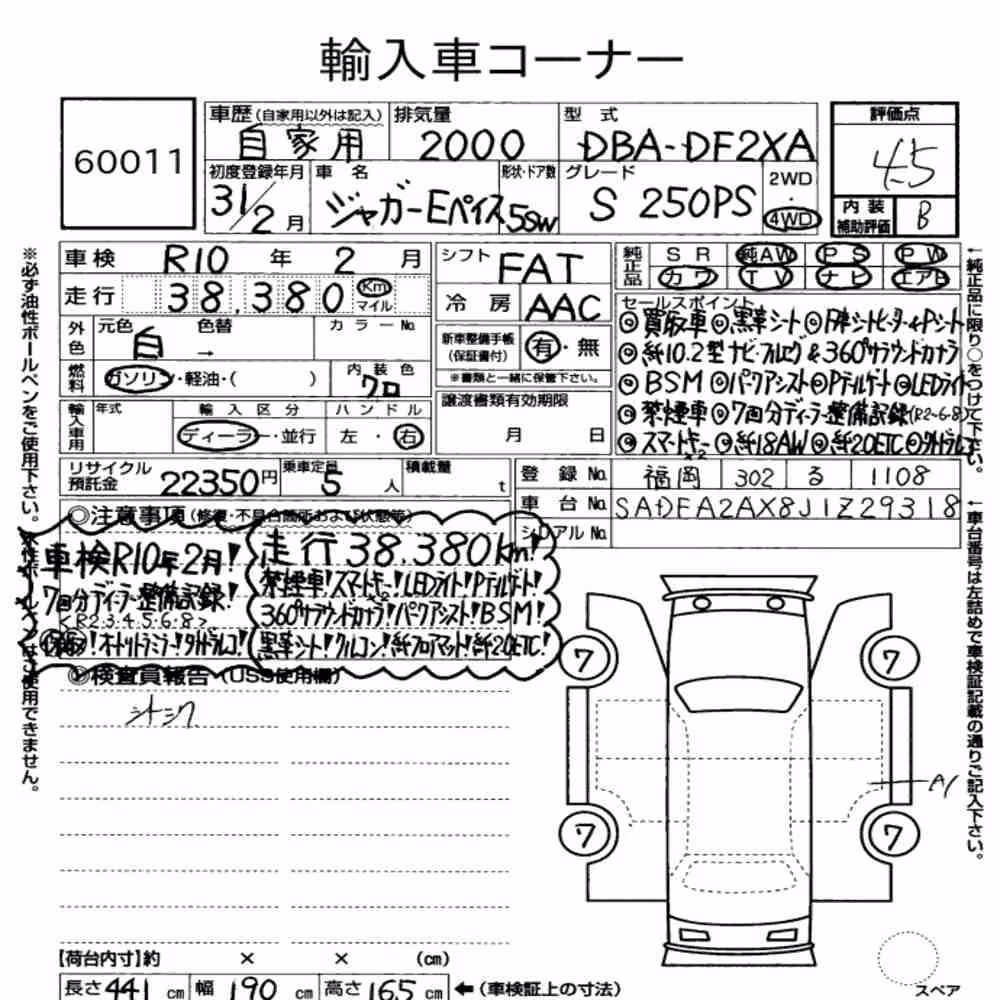 輸入車コーナー
60011
車歴(自家用以外は記入) 自家用
排気量 2000
型式 DBA-DF2XA
評価点 4.5
初度登録年月 31/2月
車名 ジャガーEペイス
形状・ドア数 5SW
グレード S 250PS
2WD・4WD
内装補助評価 B
車検 R10年2月
シフト FAT
純正品 SR 純AW PS PW
カワ TV ナビ エアB
走行 38,380 Km マイル
冷房 AAC
セールスポイント
◎買取車◎黒革シート◎F席シートヒーター&Pシート
◎純10.2型ナビ・フルセグ&360°サラウンドカメラ
◎BSM◎パークアシスト◎Pテルゲート◎LEDライト
◎禁煙車◎7回分ディーラー整備記録(R2~6・8)
◎スマートキー×2◎純18AW◎純20ETC◎外ドラレコ
外色 元色 白 色替 → カラーNo.
新車整備手帳(保証書付) 有・無
※書類と一緒に保管下さい。
燃料 ガソリン・軽油・( )
内装色 クロ
譲渡書類有効期限 月 日
輸入車用 年式 輸入区分 ディーラー・並行 ハンドル 左・右
リサイクル預託金 22350円
乗車定員 5人
積載量 t
登録No. 福岡 302 る 1108
車台No. SADFA2AX8J1Z29318
シリアルNo.
◎注意事項(修復・不具合箇所および状態等)
車検R10年2月!
7回分ディーラー整備記録!
<R2.3.4.5.6.8>
走行38.380km!
禁煙車!スマートキー×2!LEDライト!Pテルゲート!
360°サラウンドカメラ!パークアシスト!BSM!
黒革シート!クルコン!純フロアマット!純20ETC!
オートトランミラー!外ドラレコ!
検査員報告(USS使用欄)
シートシワ
7
7
7
7
A1
【荷台内寸】約 × × (cm)
長さ441cm 幅190cm 高さ165cm ←(車検証上の寸法)
スペア
※必ず油性ボールペンをご使用下さい。
はご使用できません。
←純正品に限り○をつけて下さい。
←車台番号は左詰めで車検証記載の通りご記入下さい。